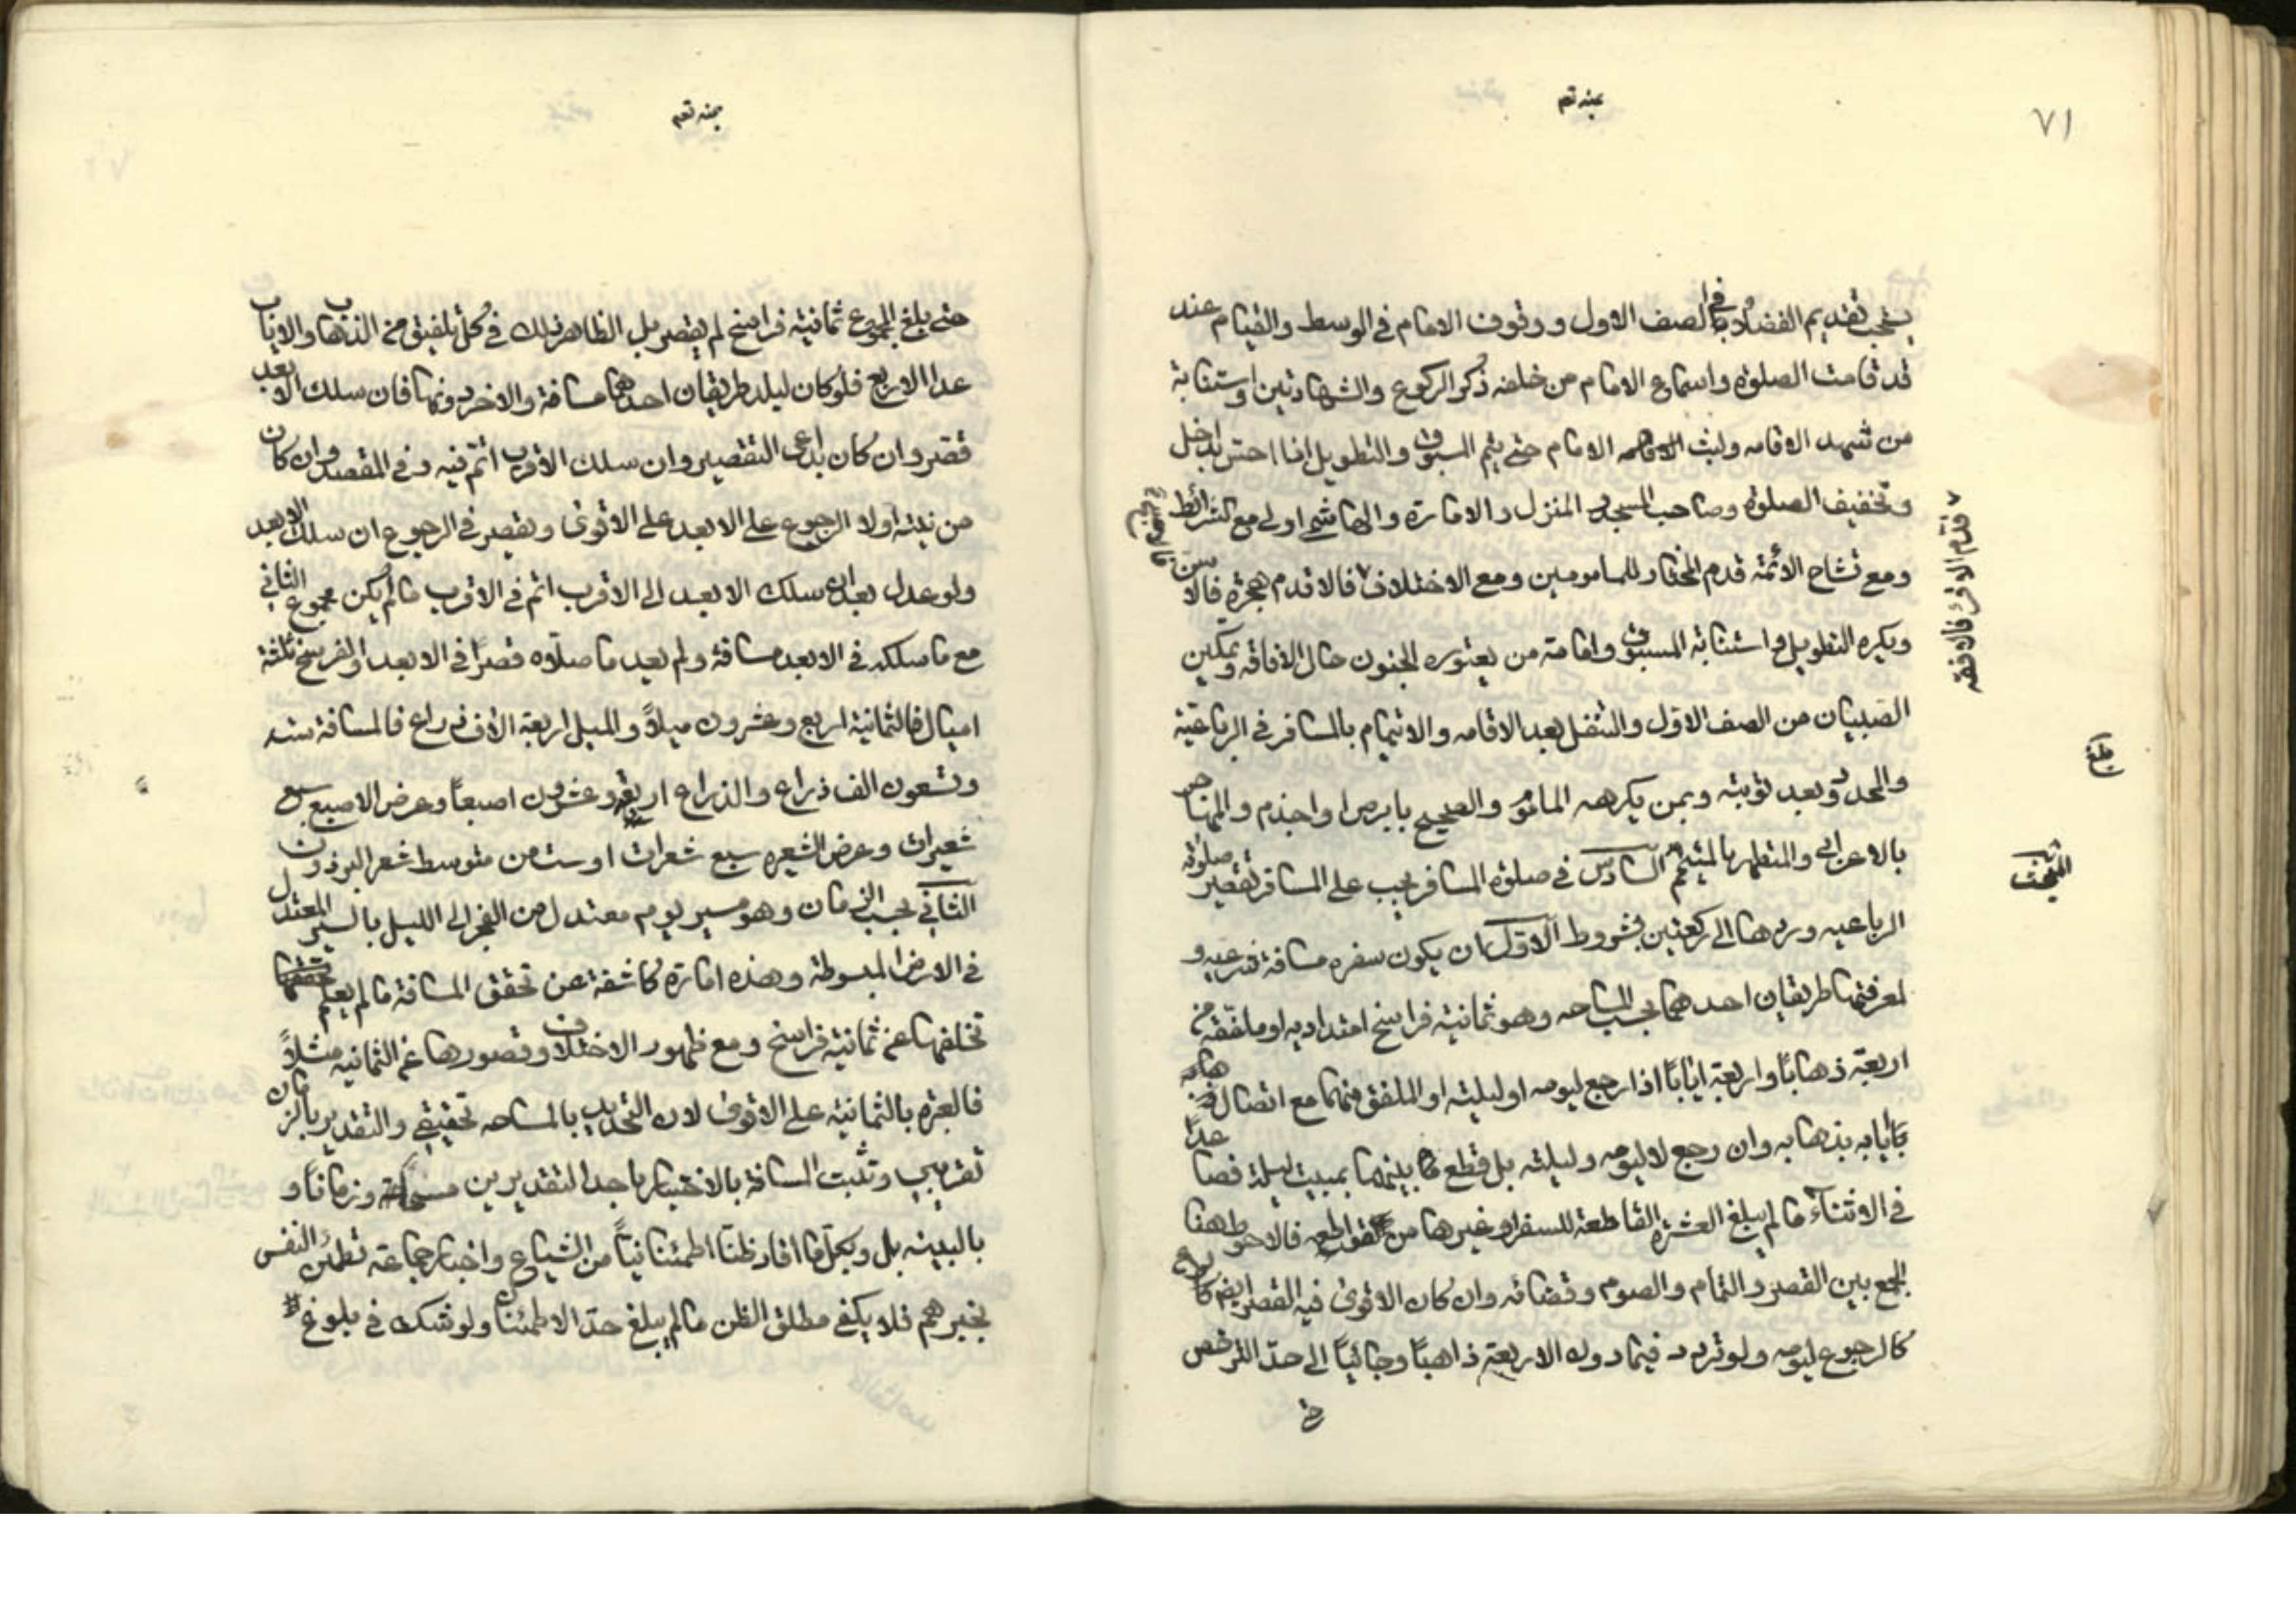 ٧١
بمنه تعم
يستحب تقديم الفضلاء في الصف الاول ووقوف الامام في الوسط والقيام عند
قد قامت الصلوة واسماع الامام من خلفه ذكر الركوع والشهادتين واستنابة
من شهد الاقامه ولبث الامام حتى يتم المسبوق والتطويل اذا احس بداخل
وتخفيف الصلوة وصاحب المسجد والمنزل والامارة والهاشمي اولى مع الشرائط
ومع تشاح الائمة قدم المختار للمامومين ومع الاختلاف فالاقدم هجرة فالاسن
قدم الاقرء فالافقه
ويكره التطويل واستنابة المسبوق وامامة من يعتوره الجنون حال الافاقه وتمكين
الصبيان من الصف الاول والتنفل بعد الاقامه والايتمام بالمسافر في الرباعية
والمحدود بعد توبته وبمن يكرهه الماموم والصحيح بابرص او اجذم والمهاجر
بالاعرابي والمتطهر بالمتيمم السادس في صلوة المسافر يجب على المسافر تقصير صلوته
المبحث
الرباعيه وردها الى ركعتين بشروط الاول ان يكون سفره مسافة شرعيه و
لمعرفتها طريقان احدهما بحسب المساحه وهو ثمانية فراسخ امتداديه او ملفقه من
اربعة ذهابا واربعة ايابا اذا رجع ليومه او ليلته او الملفق منهما مع اتصال ذهابه
بايابه وان رجع لا ليومه وليلته بل قطع ما بينهما بمبيت ليلة فصاعدا
في الاثناء ما لم يبلغ العشرة القاطعة للسفر او غيرها من القواطع فالاحوط هنا
الجمع بين القصر والتمام والصوم وقضائه وان كان الاقوى فيه القصر ايضا
كالرجوع ليومه ولو تردد فيما دون الاربعة ذاهبا وجائيا الى حد الترخص
بمنه تعم
حتى بلغ المجموع ثمانية فراسخ لم يقصر بل الظاهر ذلك في كل تلفيق من الذهاب والاياب
عدا الاربع فلو كان لبلد طريقان احدهما مسافة والاخر دونها فان سلك الابعد
قصر وان كان بداعي التقصير وان سلك الاقرب اتم فيه وفي المقصد وان كان
من نيته اولا الرجوع على الابعد على الاقوى ويقصر في الرجوع ان سلك الابعد
ولو عدل بعد ان سلك الابعد الى الاقرب اتم في الاقرب ما لم يكن مجموع الثاني
مع ما سلكه في الابعد مسافة ولم يعد ما صلاه قصرا في الابعد والفرسخ ثلثة
اميال فالثمانية اربع وعشرون ميلا والميل اربعة الاف ذراع فالمسافة ستة
وتسعون الف ذراع والذراع اربعة وعشرون اصبعا وعرض الاصبع سبع
شعيرات وعرض الشعيره سبع شعرات او ست من متوسط شعر البرذون
الثاني بحسب الزمان وهو مسير يوم معتدل من الفجر الى الليل بالسير المعتدل
في الارض المبسوطة وهذه امارة كاشفة عن تحقق المسافة ما لم يعلم
تخلفها عن ثمانية فراسخ ومع ظهور الاختلاف وقصورها عن الثمانيه مثلا
فالعبرة بالثمانية على الاقوى لان التحديد بالمساحه تحقيقي والتقدير بالزمان
تقريبي وتثبت المسافة بالاختبار باحد التقديرين مساحة وزمانا و
بالبينه بل وبكل ما افاد ظنا اطمئنانيا من الشياع واخبار جماعة تطمئن النفس
بخبرهم فلا يكفي مطلق الظن ما لم يبلغ حد الاطمئنان ولو شك في بلوغ